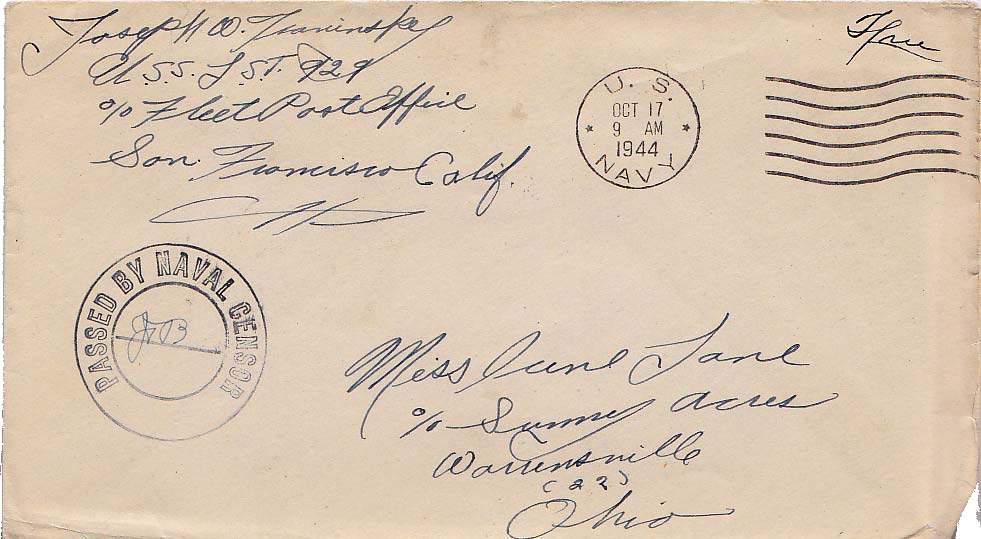 Joseph W.
U.S.S. L.ST. 929
c/o Fleet Post Office
San Francisco Calif.
Free
U. S.
OCT 17
9 AM
1944
NAVY
PASSED BY NAVAL CENSOR
JB
Miss June Lane
c/o Sunny Acres
Warrensville
(22)
Ohio